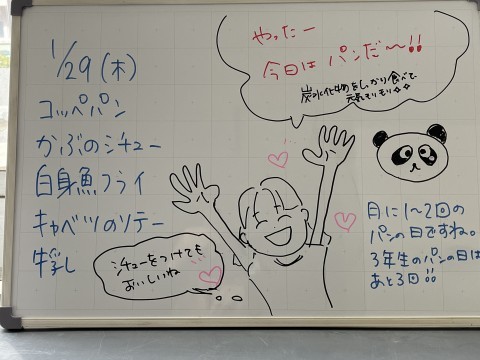 1/29(木)
コッペパン
かぶのシチュー
白身魚フライ
キャベツのソテー
牛乳
やったー
今日はパンだ〜!!
炭水化物をしっかり食べて
元気モリモリ✧✧
シチューをつけても
おいしいね
月に1〜2回の
パンの日ですね。
3年生のパンの日は
あと3回!!